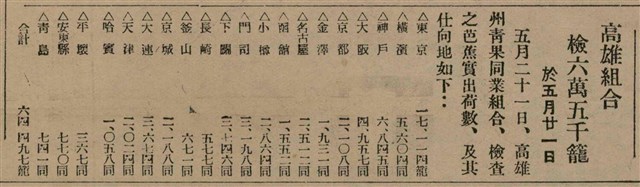 高雄組合
檢六萬五千籠
於五月廿一日
五月二十一日、高雄
州青果同業組合、檢查
之芭蕉實出荷數、及其
仕向地如下：
△東京 一七、一一四籠
△橫濱 五、六〇四同
△神戶 六、八四五同
△大阪 四、九五七同
△京都 二、一〇八同
△金澤 一、九三一同
△名古屋 二、五五一同
△函館 一、五五二同
△小樽 二、八六四同
△門司 三、一九八同
△下關 三、七四六同
△長崎 五七七同
△釜山 六七一同
△京城 二、一八八同
△大連 三、六七四同
△天津 二、〇二四同
△哈賓 一、〇五八同
△平壤 三六七同
△安東縣 七七〇同
△青島 七四一同
合計 六四、四九七籠